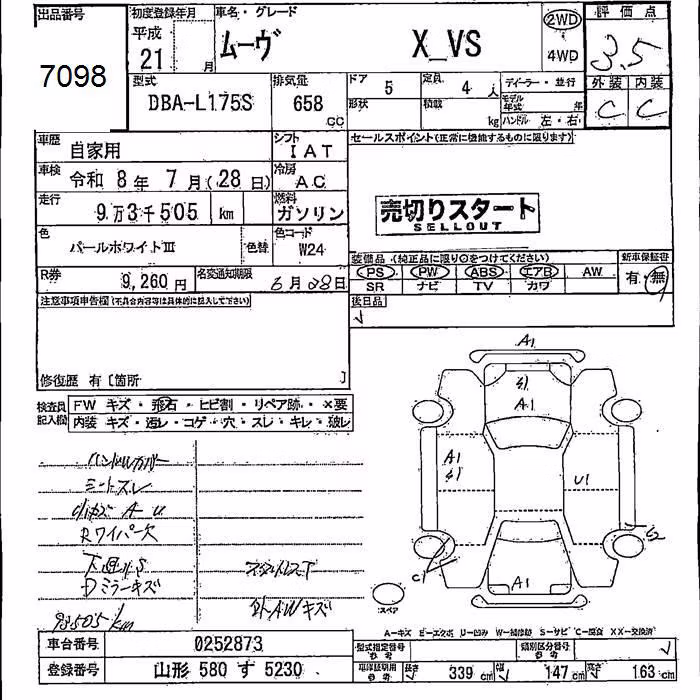 出品番号
7098
初度登録年月
平成
21 月
車名・グレード
ムーヴ X_VS
2WD
4WD
評価点
3.5
外装 内装
C C
型式
DBA-L175S
排気量
658
CC
ドア 5
定員 4 人
形状
積載 kg
ディーラー・並行
モデル年式 年
ハンドル 左・右
車歴
自家用
シフト
IAT
車検
令和 8年 7月(28日)
冷房
AC
走行
9万3千505 km
燃料
ガソリン
色
パールホワイトⅢ
色替
色コード
W24
R券
9,260円
名変通知期限
6月28日
セールスポイント(正常に機能するものに限ります)
売切りスタート
SELLOUT
装備品(純正品に限り○をつけてください)
PS PW ABS エアB AW
SR ナビ TV カワ
新車保証書
有・無
後日品
注意事項申告欄(不具合内容等は具体的に記入して下さい)
修復歴 有〔箇所 〕
検査員記入欄
FW キズ・飛石・ヒビ割・リペア跡・×要
内装 キズ・汚レ・コゲ・穴・スレ・キレ・破レ
ハンドルカバー
シートスレ
A U
Rワイパー欠
下廻りS
Dミラーキズ
93505km
スタッドレス下
外AWキズ
A1
A1
A1
U1
A1
C1
S2
スペア
A-キズ E-エクボ U-凹み W-補修跡 S-サビ C-腐食 XX-交換済
車台番号
0252873
登録番号
山形 580 す 5230
型式指定番号 参考
類別区分番号 参考
車庫証明用 参考
長さ 339 cm 幅 147 cm 高さ 163 cm